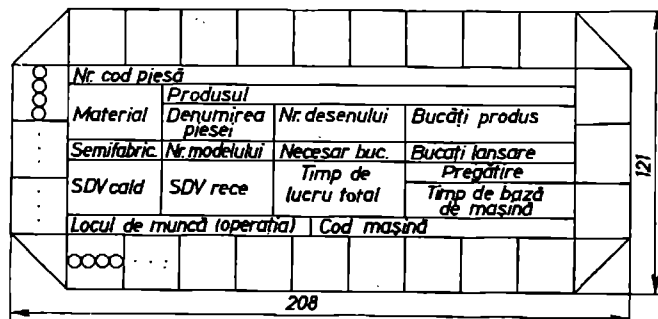 Nr. cod piesă
Produsul
Material
Denumirea piesei
Nr. desenului
Bucăți produs
Semifabric.
Nr. modelului
Necesar buc.
Bucați lansare
SDV cald
SDV rece
Timp de lucru total
Pregătire
Timp de bază de mașină
Locul de muncă (operația)
Cod mașină
208
121